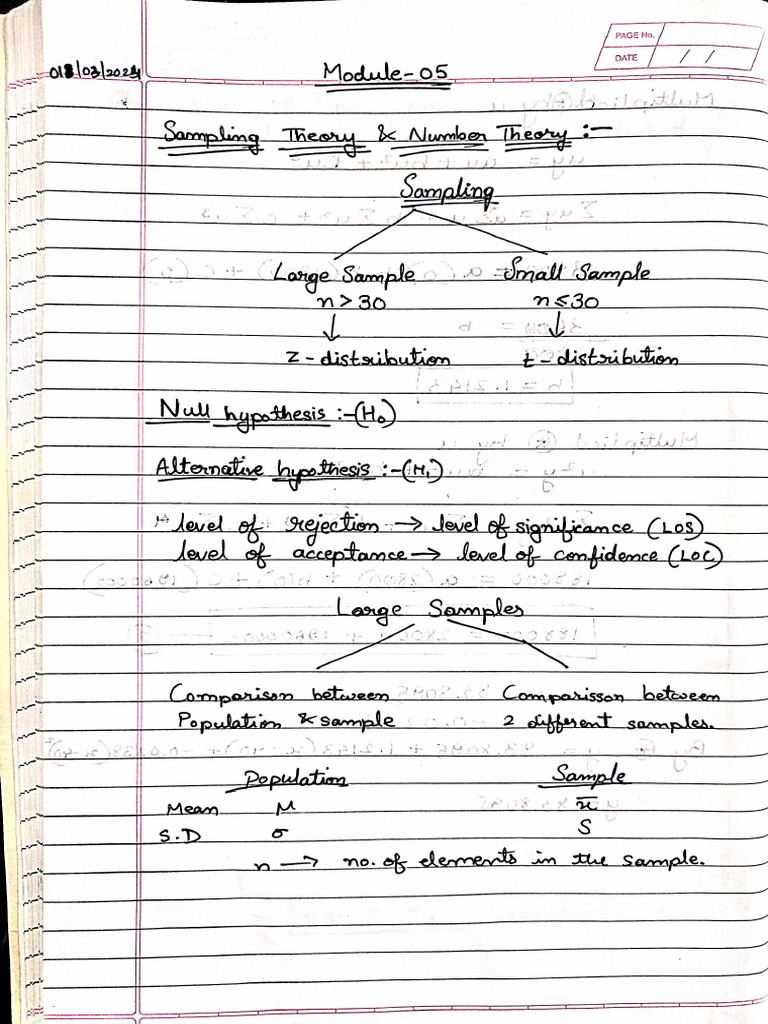 PAGE No.
DATE / /
01/03/2024
Module-05
Sampling Theory & Number Theory :-
Sampling
Large Sample Small Sample
n > 30 n ≤ 30
↓ ↓
Z-distribution t-distribution
Null hypothesis :- (H₀)
Alternative hypothesis :- (H₁)
level of rejection → level of significance (LOS)
level of acceptance → level of confidence (LOC)
Large Samples
Comparison between Comparisson between
Population & sample 2 different samples.
Population Sample
Mean μ x̄
S.D σ S
n → no. of elements in the sample.